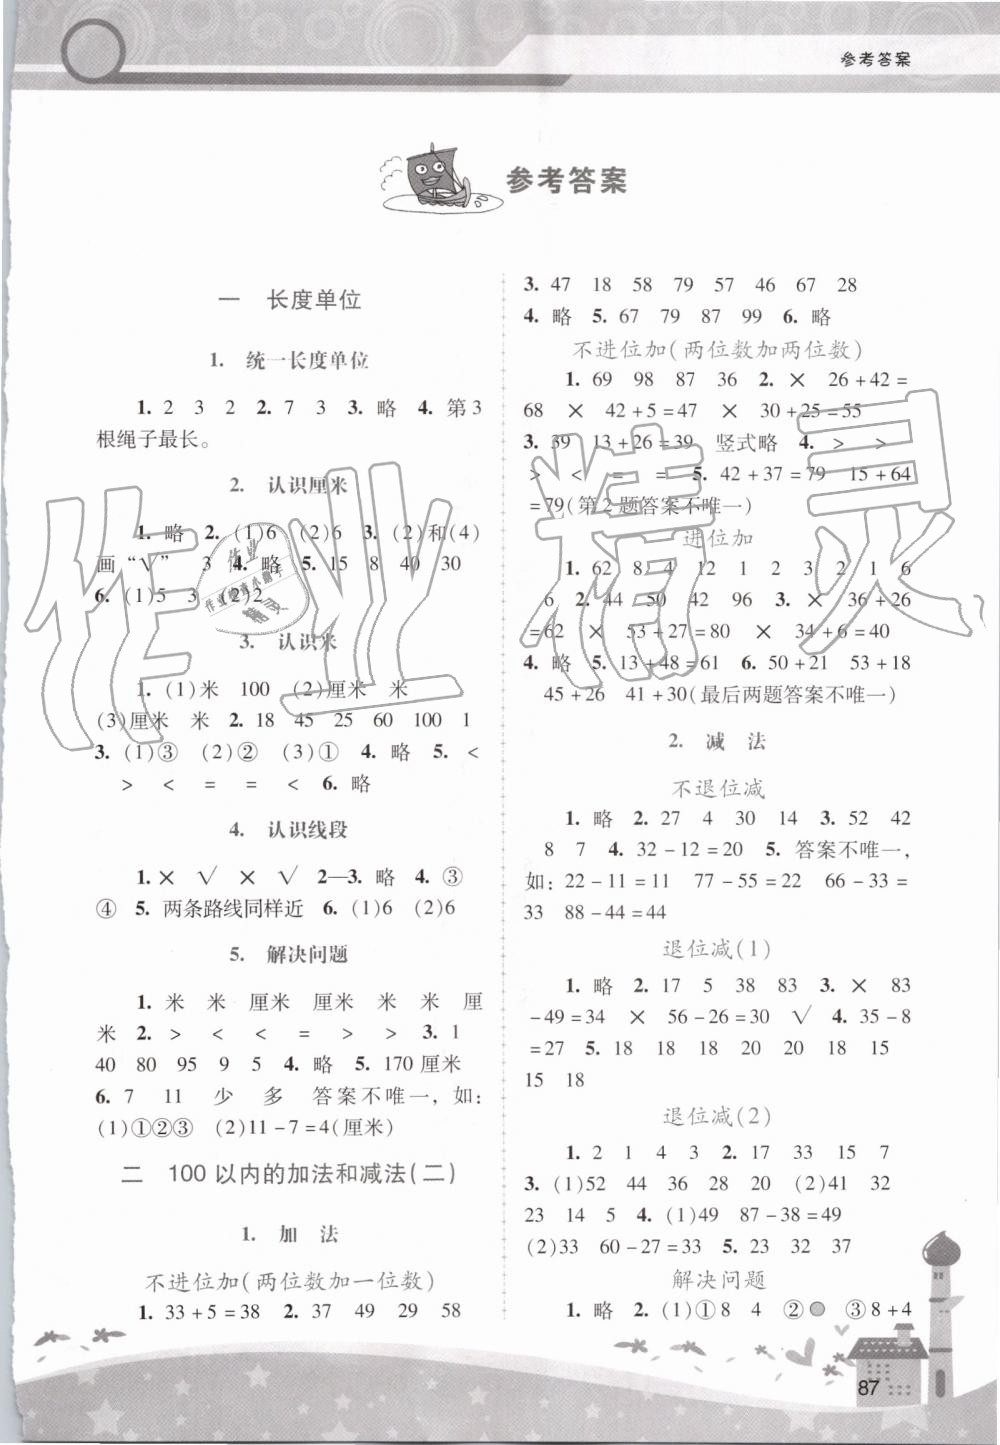 参考答案
参考答案
一 长度单位
1. 统一长度单位
1. 2 3 2 2. 7 3 3. 略 4. 第3
根绳子最长。
2. 认识厘米
1. 略 2. (1)6 (2)6 3. (2)和(4)
画“√” 3 4. 略 5. 15 8 40 30
6. (1)5 3 (2)2
3. 认识米
1. (1)米 100 (2)厘米 米
(3)厘米 米 2. 18 45 25 60 100 1
3. (1)③ (2)② (3)① 4. 略 5. <
> < = = < 6. 略
4. 认识线段
1. × √ × √ 2—3. 略 4. ③
④ 5. 两条路线同样近 6. (1)6 (2)6
5. 解决问题
1. 米 米 厘米 厘米 米 米 厘
米 2. > < < = > > 3. 1
40 80 95 9 5 4. 略 5. 170厘米
6. 7 11 少 多 答案不唯一,如:
(1)①②③ (2)11-7=4(厘米)
二 100以内的加法和减法(二)
1. 加 法
不进位加(两位数加一位数)
1. 33+5=38 2. 37 49 29 58
3. 47 18 58 79 57 46 67 28
4. 略 5. 67 79 87 99 6. 略
不进位加(两位数加两位数)
1. 69 98 87 36 2. × 26+42=
68 × 42+5=47 × 30+25=55
3. 39 13+26=39 竖式略 4. > >
> < = = 5. 42+37=79 15+64
=79(第2题答案不唯一)
进位加
1. 62 8 4 12 1 3 2 1 6
6 2. 44 50 42 96 3. × 36+26
=62 × 53+27=80 × 34+6=40
4. 略 5. 13+48=61 6. 50+21 53+18
45+26 41+30(最后两题答案不唯一)
2. 减 法
不退位减
1. 略 2. 27 4 30 14 3. 52 42
8 7 4. 32-12=20 5. 答案不唯一,
如:22-11=11 77-55=22 66-33=
33 88-44=44
退位减(1)
1. 略 2. 17 5 38 83 3. × 83
-49=34 × 56-26=30 √ 4. 35-8
=27 5. 18 18 18 20 20 18 15
15 18
退位减(2)
1. 2 1 4 3 2. 17 33 15 7
3. (1)52 44 36 28 20 (2)41 32
23 14 5 4. (1)49 87-38=49
(2)33 60-27=33 5. 23 32 37
解决问题
1. 略 2. (1)①8 4 ②● ③8+4
87
作业精灵